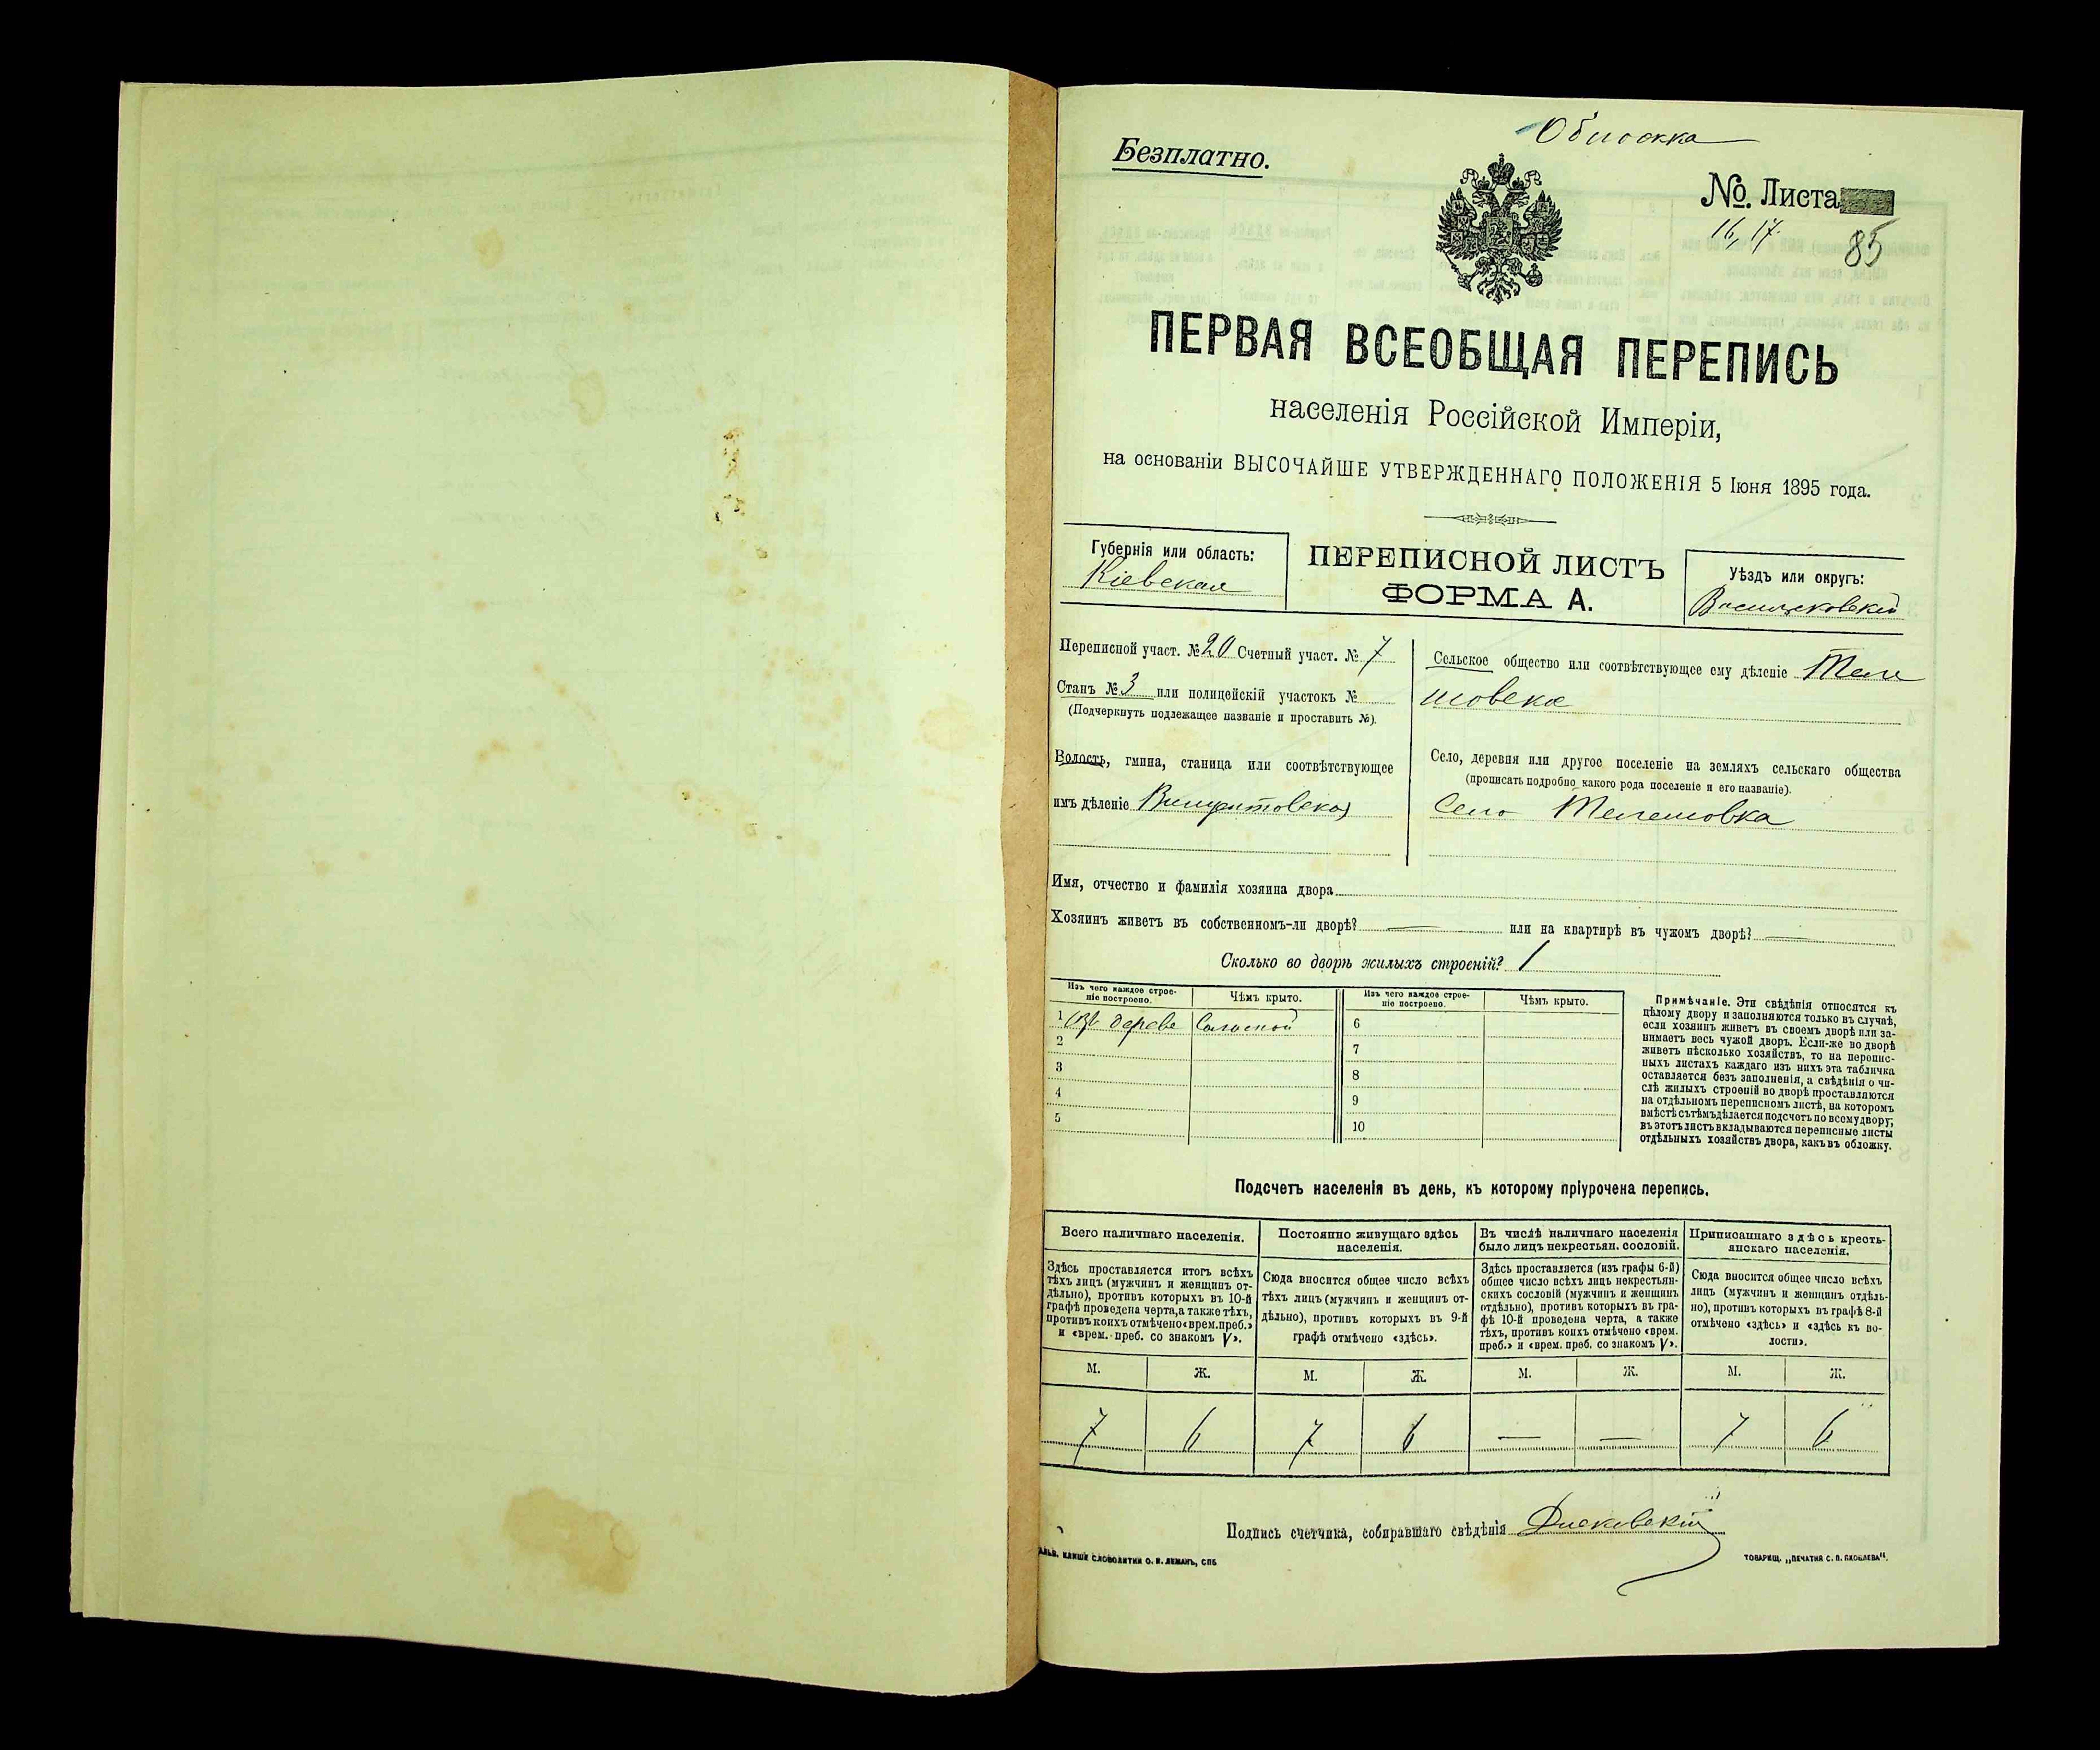 Обложка
Безплатно.
№. Листа
16, 17.
85
ПЕРВАЯ ВСЕОБЩАЯ ПЕРЕПИСЬ
населенія Россійской Имперіи,
на основаніи ВЫСОЧАЙШЕ УТВЕРЖДЕННАГО ПОЛОЖЕНІЯ 5 Іюня 1895 года.
Губернія или область:
Кіевская
ПЕРЕПИСНОЙ ЛИСТЪ
ФОРМА А.
Уѣздъ или округъ:
Васильковскій
Переписной участ. № 20 Счетный участ. № 7
Станъ № 3 или полицейскій участокъ №
(Подчеркнуть подлежащее названіе и проставить №).
Волость, гмина, станица или соотвѣтствующее
имъ дѣленіе Винцентовская
Сельское общество или соотвѣтствующее ему дѣленіе Теле
шовское
Село, деревня или другое поселеніе на земляхъ сельскаго общества
(прописать подробно какого рода поселеніе и его названіе).
Село Телешовка
Имя, отчество и фамилія хозяина двора
Хозяинъ живетъ въ собственномъ-ли дворѣ? — или на квартирѣ въ чужомъ дворѣ? —
Сколько во дворѣ жилыхъ строеній? 1
Изъ чего каждое строе-
ніе построено.
Чѣмъ крыто.
Изъ чего каждое строе-
ніе построено.
Чѣмъ крыто.
1 Изъ дерева Соломой
2
3
4
5
6
7
8
9
10
Примѣчаніе. Эти свѣдѣнія относятся къ
цѣлому двору и заполняются только въ случаѣ,
если хозяинъ живетъ въ своемъ дворѣ или за-
нимаетъ весь чужой дворъ. Если-же во дворѣ
живетъ нѣсколько хозяйствъ, то на перепис-
ныхъ листахъ каждаго изъ нихъ эта табличка
оставляется безъ заполненія, а свѣдѣнія о чи-
слѣ жилыхъ строеній во дворѣ проставляются
на отдѣльномъ переписномъ листѣ, на которомъ
вмѣстѣ съ тѣмъ дѣлается подсчетъ по всему двору;
въ этотъ листъ вкладываются переписные листы
отдѣльныхъ хозяйствъ двора, какъ въ обложку.
Подсчетъ населенія въ день, къ которому пріурочена перепись.
Всего наличнаго населенія.
Здѣсь проставляется итогъ всѣхъ
тѣхъ лицъ (мужчинъ и женщинъ от-
дѣльно), противъ которыхъ въ 10-й
графѣ проведена черта, а также тѣхъ,
противъ коихъ отмѣчено «врем. преб.»
и «врем. преб. со знакомъ V».
Постоянно живущаго здѣсь
населенія.
Сюда вносится общее число всѣхъ
тѣхъ лицъ (мужчинъ и женщинъ от-
дѣльно), противъ которыхъ въ 9-й
графѣ отмѣчено «здѣсь».
Въ числѣ наличнаго населенія
было лицъ некрестьян. сословій.
Здѣсь проставляется (изъ графы 6-й)
общее число всѣхъ лицъ некрестьян-
скихъ сословій (мужчинъ и женщинъ
отдѣльно), противъ которыхъ въ гра-
фѣ 10-й проведена черта, а также
тѣхъ, противъ коихъ отмѣчено «врем.
преб.» и «врем. преб. со знакомъ V».
Приписаннаго здѣсь кресть-
янскаго населенія.
Сюда вносится общее число всѣхъ
лицъ (мужчинъ и женщинъ отдѣль-
но), противъ которыхъ въ графѣ 8-й
отмѣчено «здѣсь» и «здѣсь къ во-
лости».
М. Ж. М. Ж. М. Ж. М. Ж.
7 6 7 6 — — 7 6
Подпись счетчика, собиравшаго свѣдѣнія
КЛИШЕ СЛОВОЛИТНИ О. И. ЛЕМАНЪ, СПБ
ТОВАРИЩ. „ПЕЧАТНЯ С. П. ЯКОВЛЕВА".